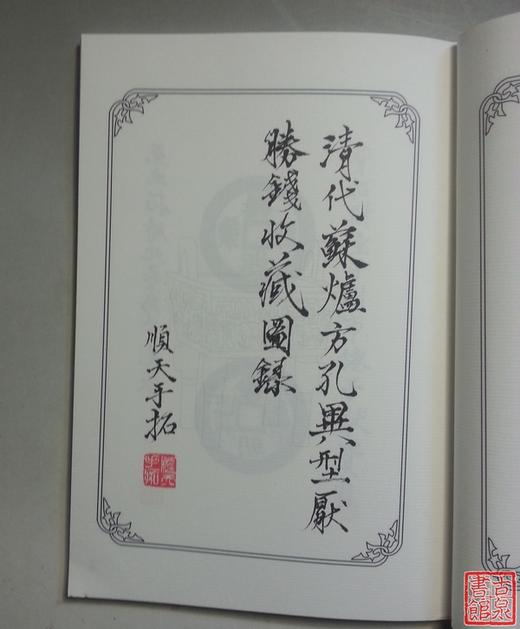 清代蘇爐方孔異型厭
勝錢收藏圖錄
順天手拓
古泉
書館